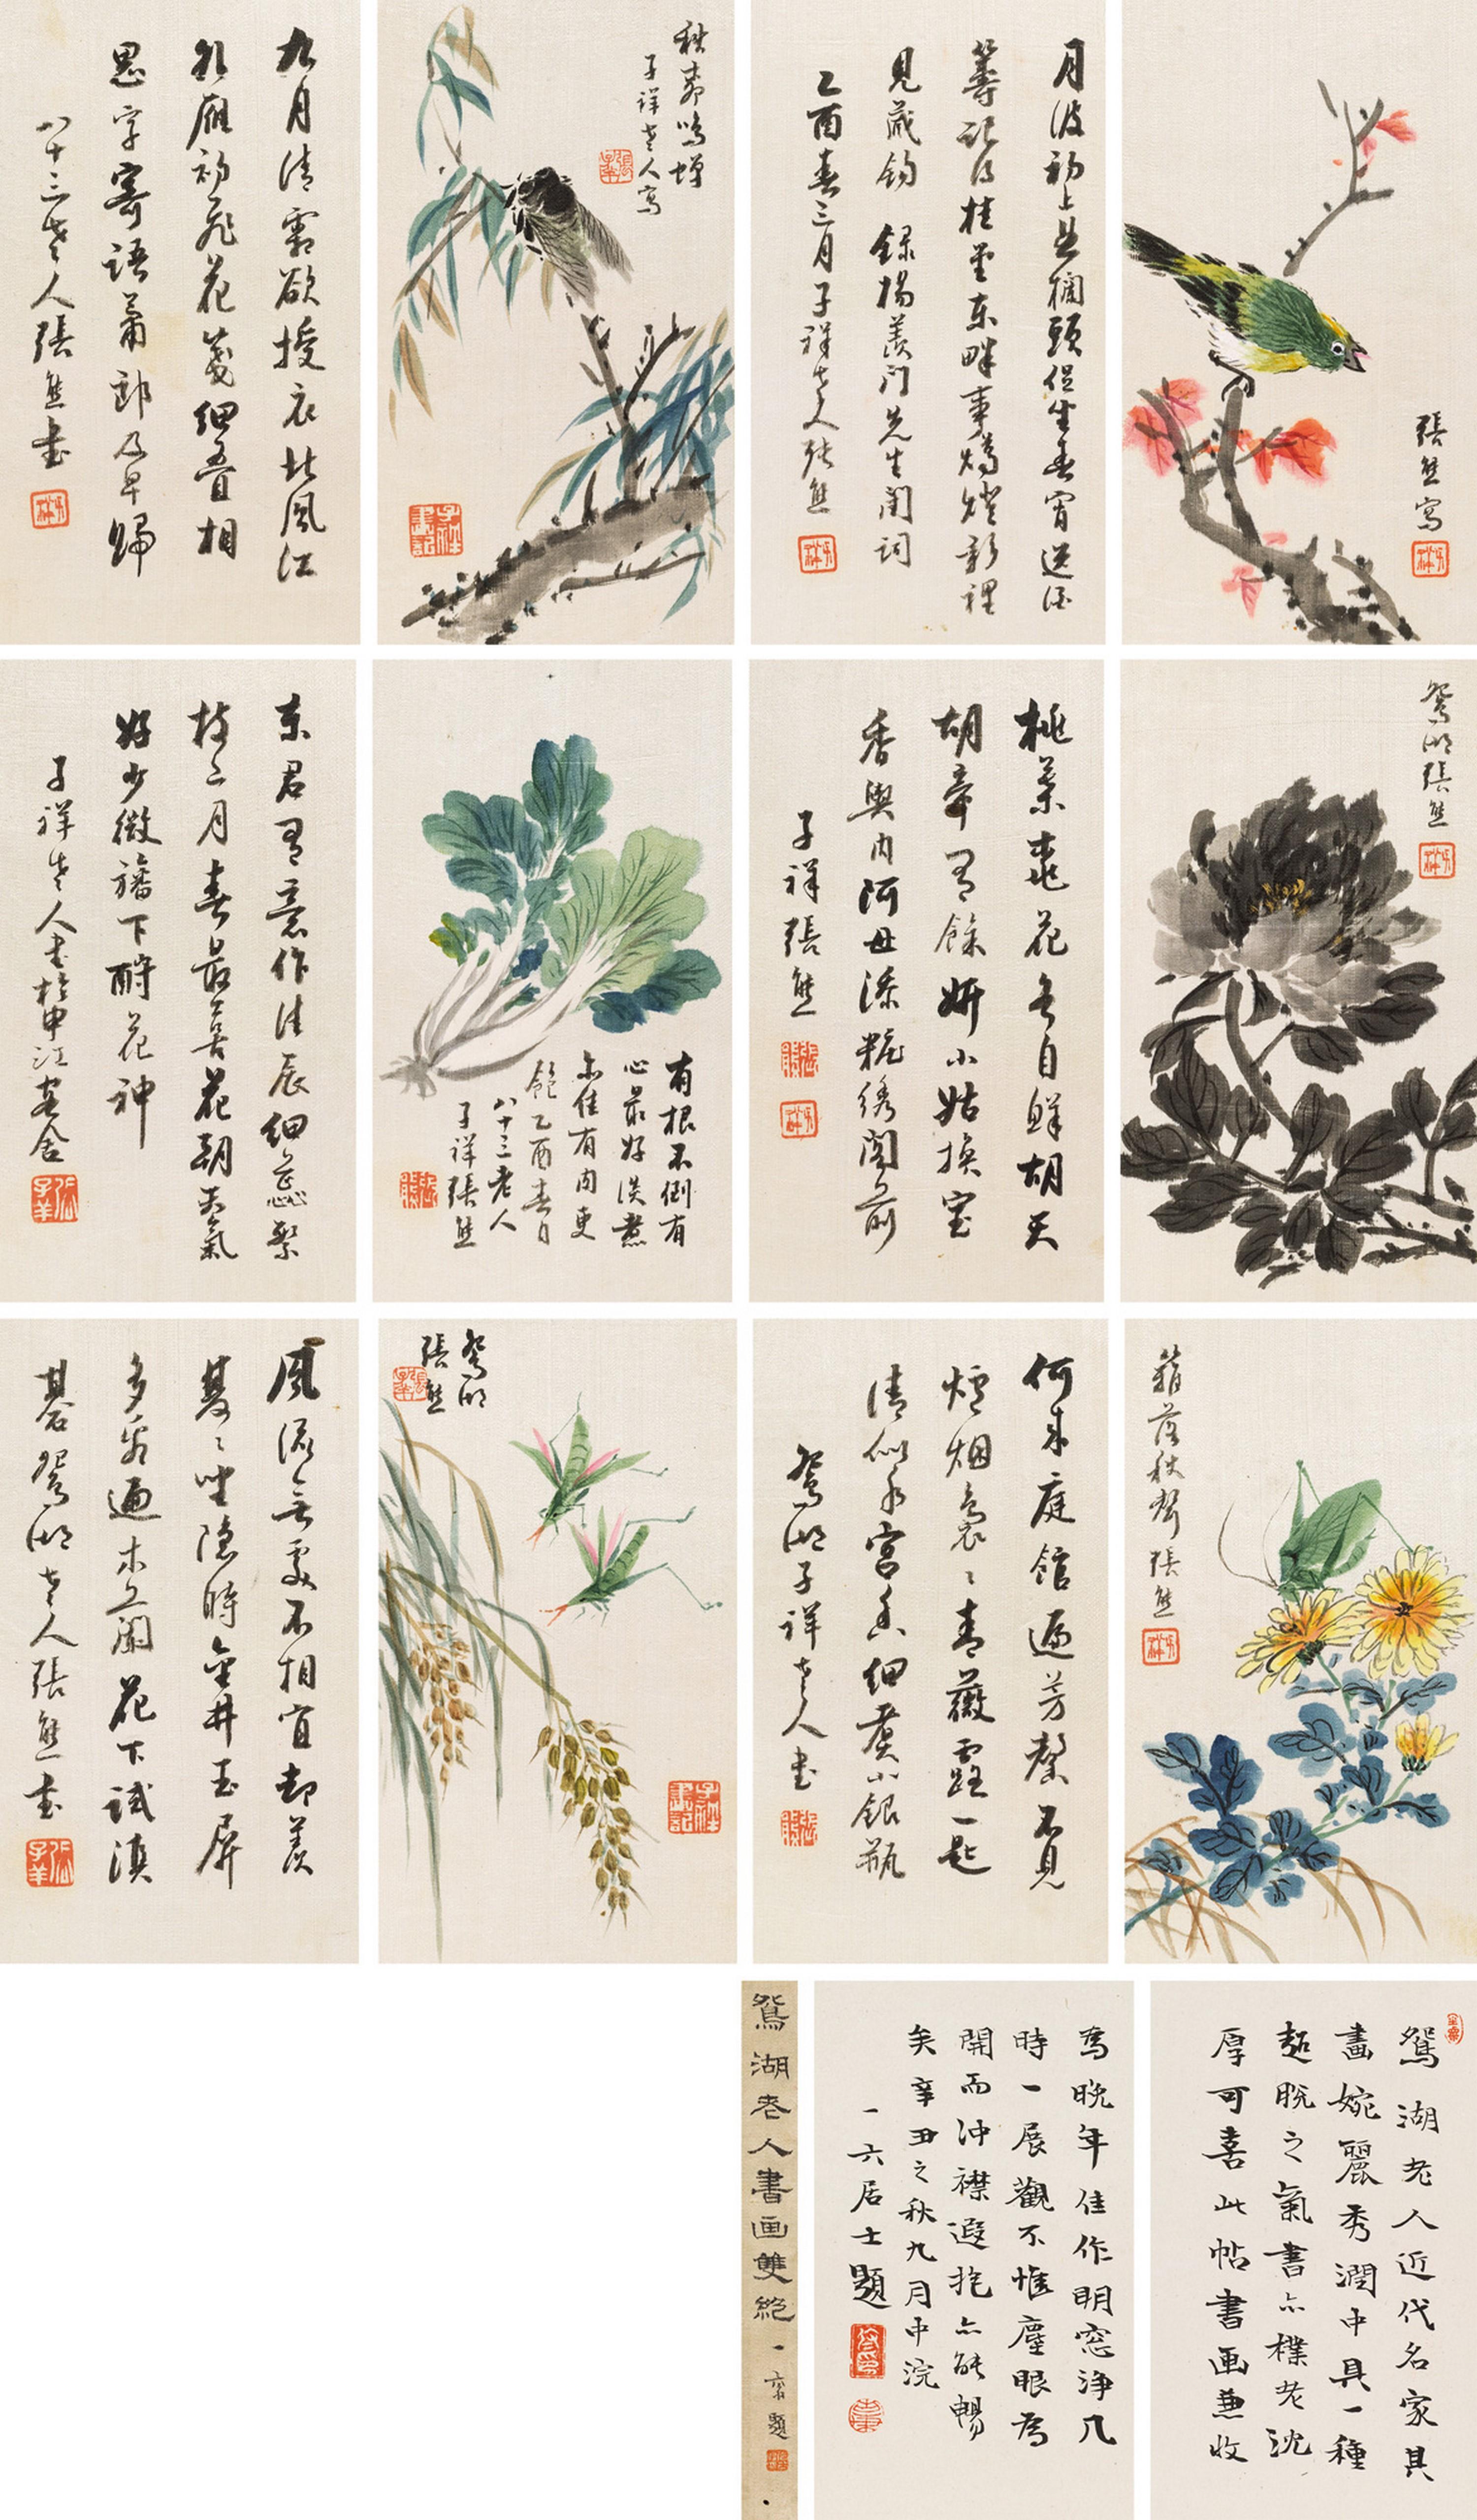 張熊寫
月波初上曲欄頭促坐春宵送酒
籌記得桂堂東畔事燭燈影裡
見藏鉤 錄楊羨門先生閨詞
乙酉春三月子祥老人張熊
秋鳴蟬
子祥老人寫
九月清霜欲授衣北風江
雁初飛花箋細沓相
思字寄語蕭郎及早歸
八十三老人張熊書
鴛湖張熊
桃葉桃花各自鮮胡天
胡帝有餘妍小姑換室
香奧內阿母添粧綉閣前
子祥張熊
有根不倒有
心最好淡煮
亦佳有肉更
飽乙酉春日
八十三老人
子祥張熊
東君有意作佳辰細蕊繁
枝二月春最喜花朝天氣
好少微旛下酹花神
子祥老人書於申江客舍
籬落秋聲 張熊
何來庭館遍芳馨不見
爐烟裊〻青薇露一匙
清似水宮香細爇小銀瓶
鴛湖子祥老人書
鴛湖
張熊
風流無處不相宜却羨
雙〻坐隱時金井玉屏
多看遍木蘭花下試彈
碁鴛湖老人張熊書
鴛湖老人近代名家其
畫婉麗秀潤中具一種
超脫之氣書亦樸老沈
厚可喜此帖書画兼收
為晚年佳作明窓淨几
時一展觀不惟塵眼為
開而沖襟遐抱亦能暢
矣辛丑之秋九月中浣
一六居士題
鴛湖老人書画雙絕